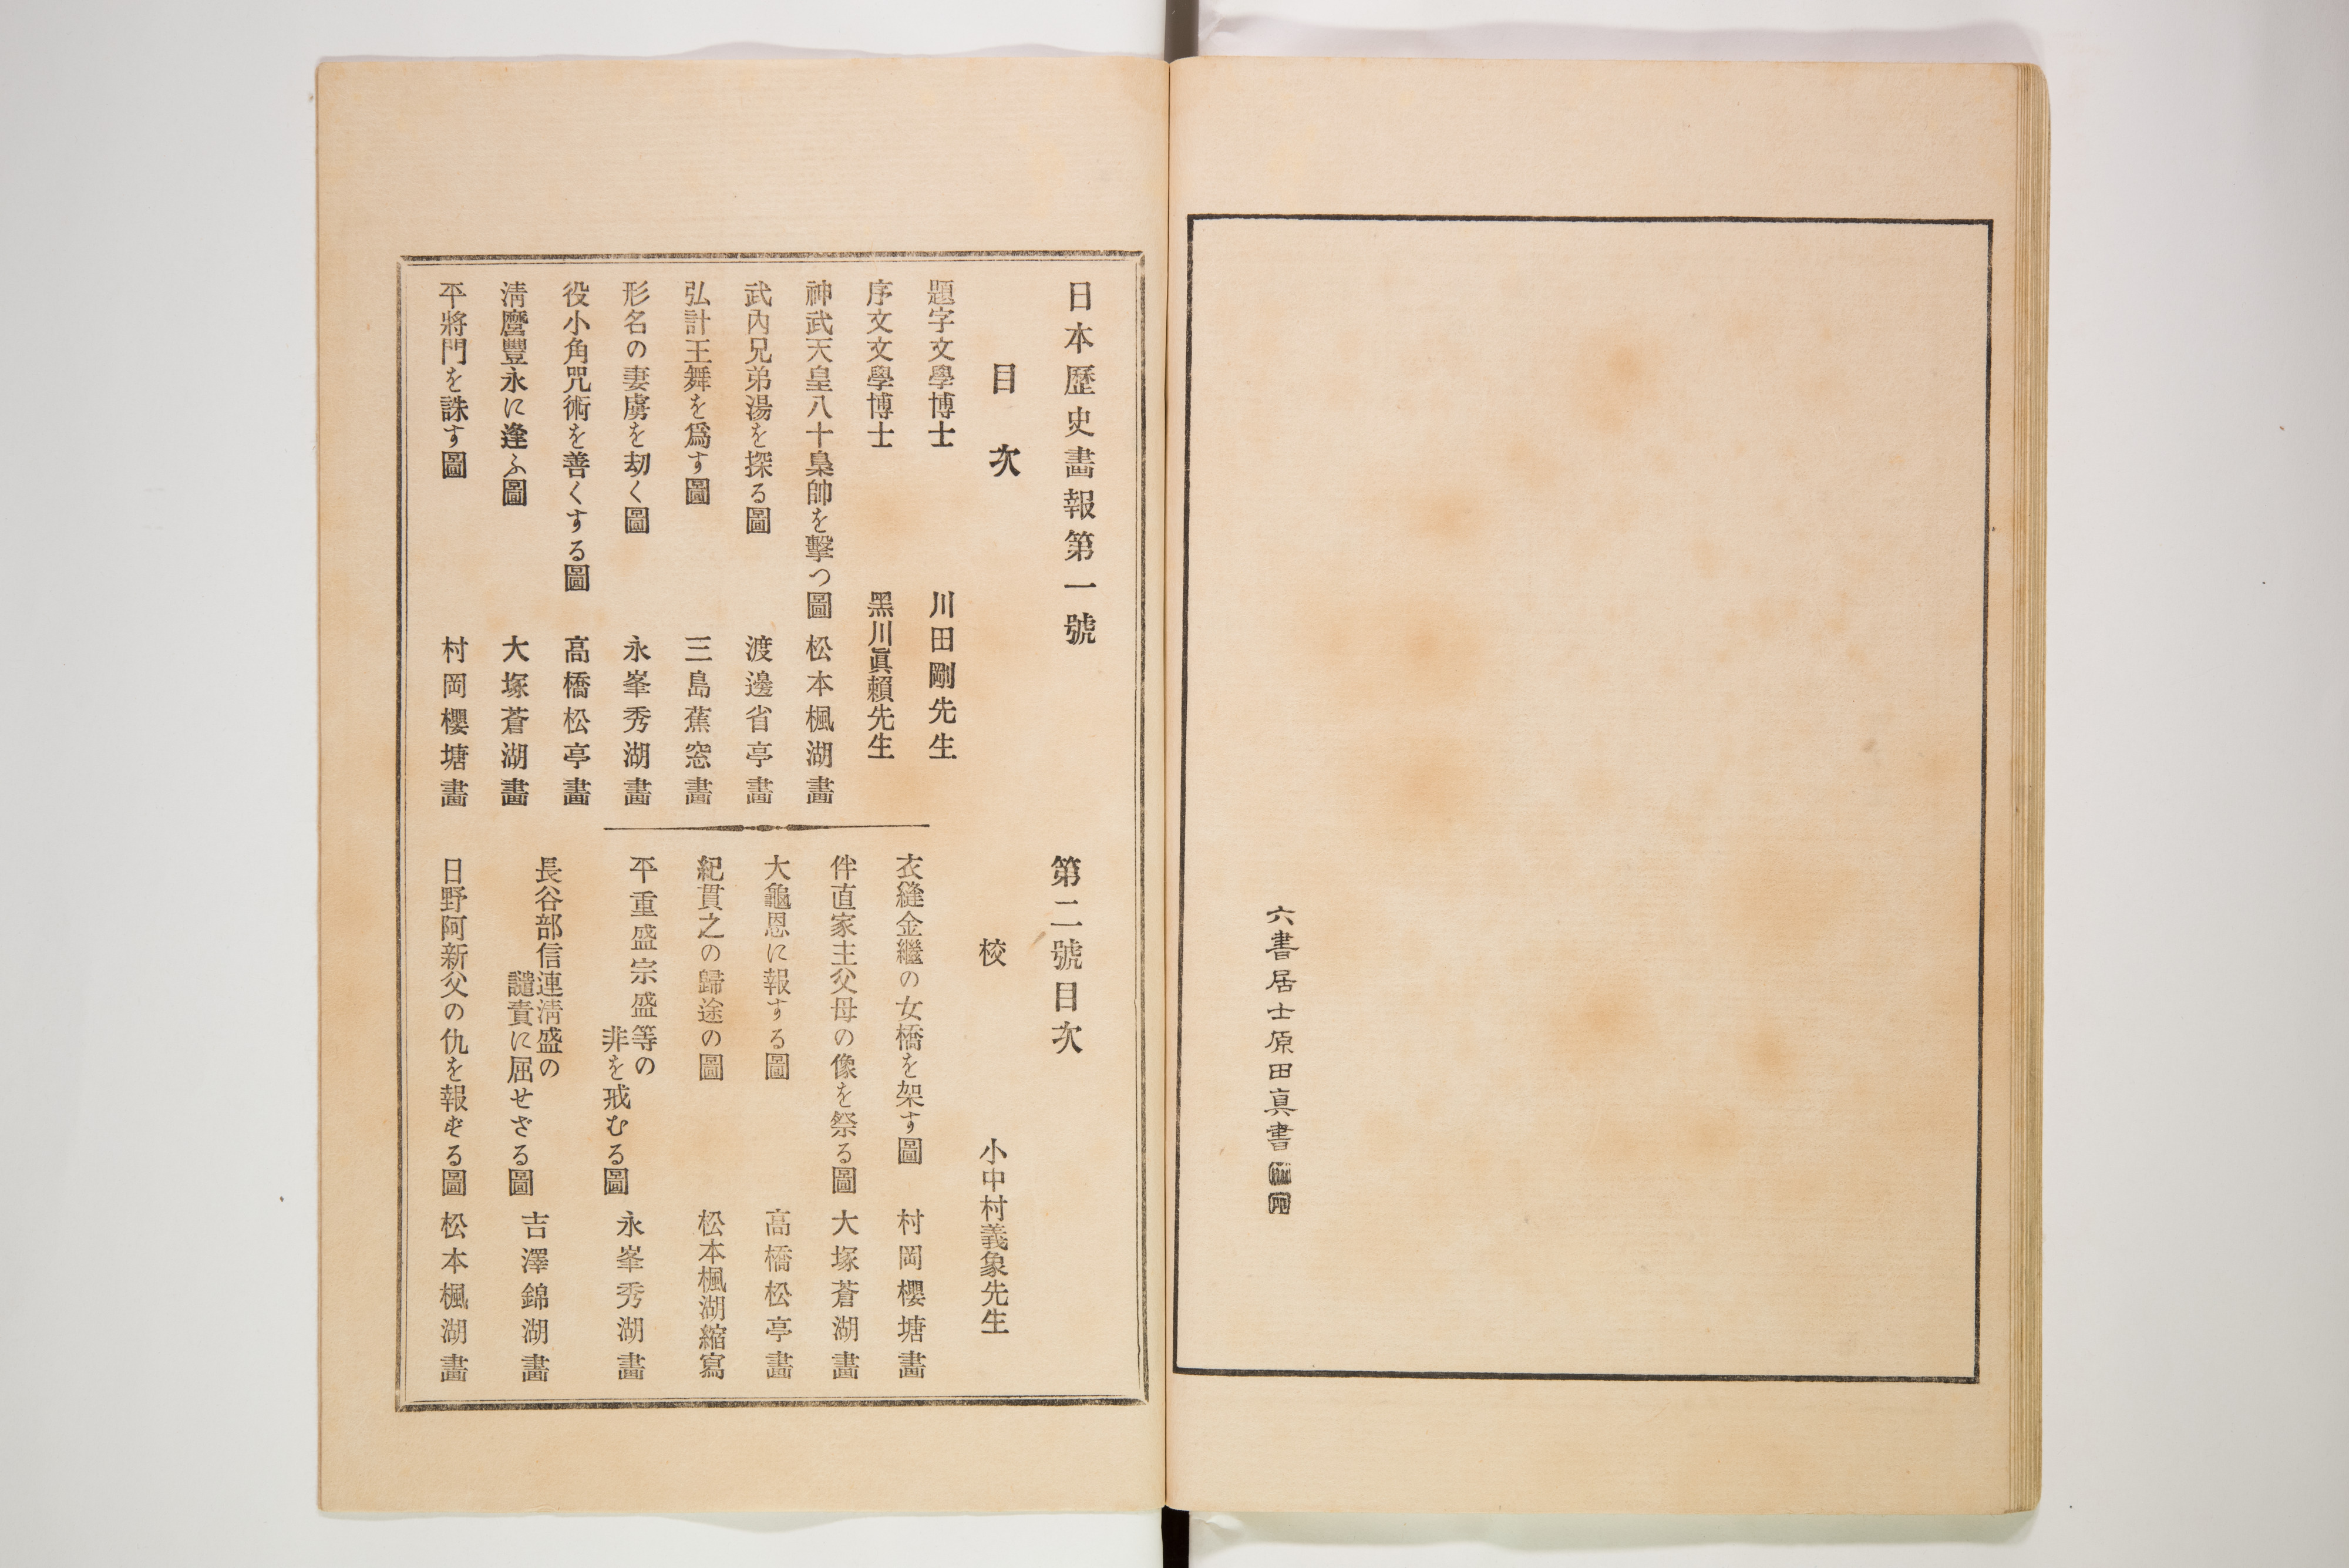 六書居士原田真書
日本歷史畵報第一號
目次
題字文學博士 川田剛先生
序文文學博士 黑川眞賴先生
神武天皇八十梟帥を擊つ圖 松本楓湖畵
武內兄弟湯を探る圖 渡邊省亭畵
弘計王舞を爲す圖 三島蕉窓畵
形名の妻虜を刧く圖 永峯秀湖畵
役小角咒術を善くする圖 高橋松亭畵
淸麿豐永に逢ふ圖 大塚蒼湖畵
平將門を誅す圖 村岡櫻塘畵
第二號目次
校 小中村義象先生
衣縫金繼の女橋を架す圖 村岡櫻塘畵
伴直家主父母の像を祭る圖 大塚蒼湖畵
大龜恩に報する圖 高橋松亭畵
紀貫之の歸途の圖 松本楓湖縮寫
平重盛宗盛等の
非を戒むる圖 永峯秀湖畵
長谷部信連淸盛の
譴責に屈せざる圖 吉澤錦湖畵
日野阿新父の仇を報ずる圖 松本楓湖畵